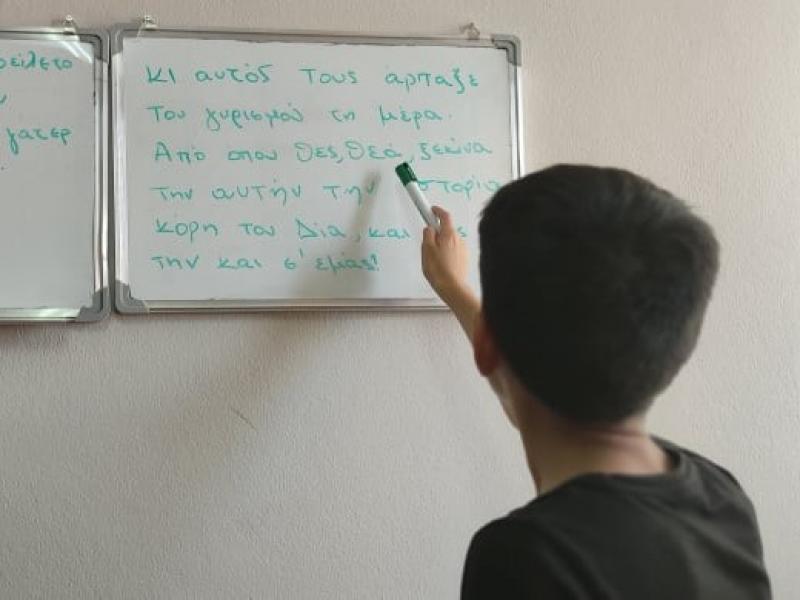 είλετο
γατερ
κι αυτός τους άρπαξε
του γυρισμού τη μέρα.
Από οπου θες, θεά, ξεκίνα
την αυτήν την στορία
κόρη του Δία, και ς
την και σ' εμάς!